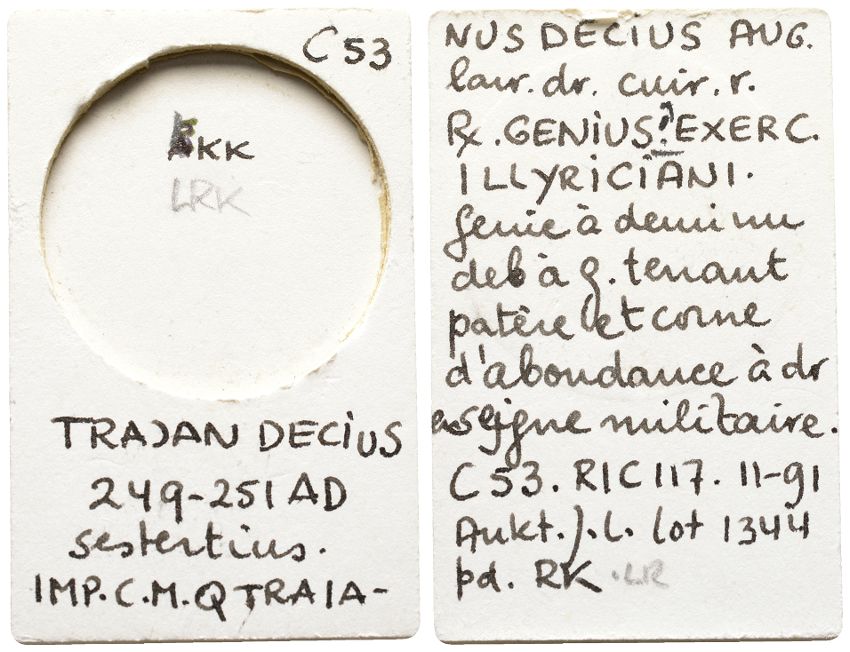 C53
KK
LRK
TRAJAN DECIUS
249-251 AD
sestertius.
IMP.C.M.Q TRAIA-
NUS DECIUS AUG.
laur. dr. cuir. r.
R. GENIUS? EXERC.
ILLYRICIANI.
Genie à demi nu
deb à g. tenant
patère et corne
d'abondance à dr
enseigne militaire.
C53. RIC 117. 11-91
Aukt. J.L. lot 1344
pd. RK .LR